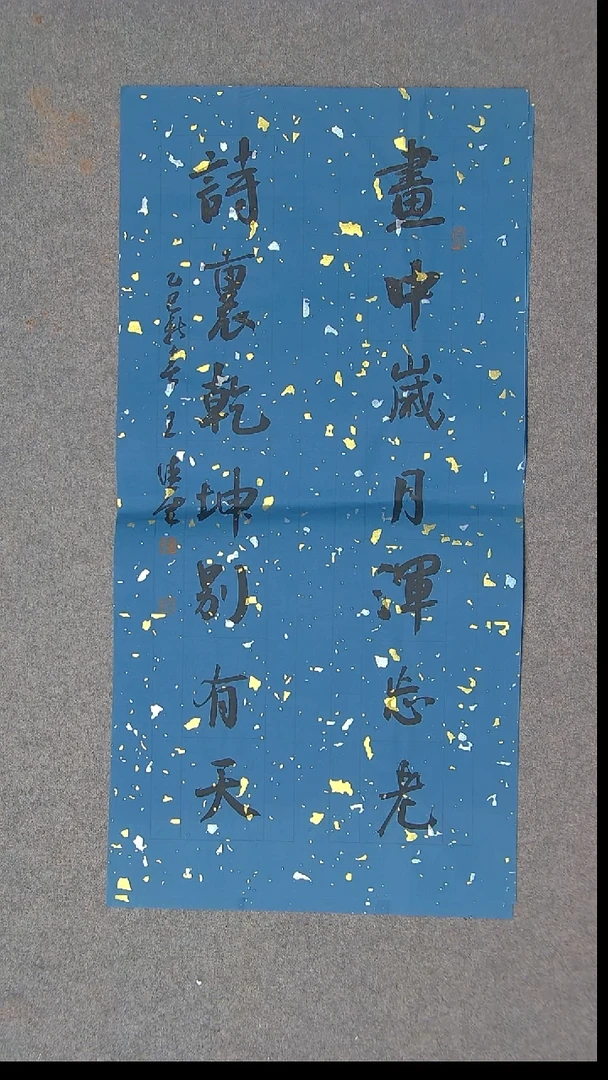 畫中歲月渾忘老
詩裏乾坤別有天
乙巳秋月 王